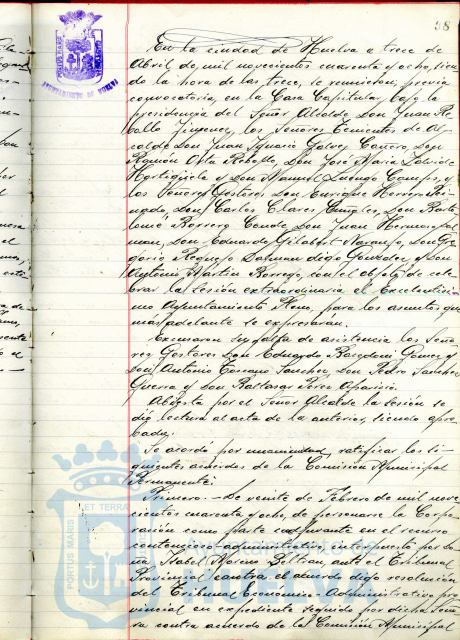 38
PORTUS MARIS
AYUNTAMIENTO DE HUELVA
En la ciudad de Huelva a trece de
Abril de mil novecientos cuarenta y ocho, sien-
do la hora de las trece, se reunieron, previa
convocatoria, en la Casa Capitular bajo la
presidencia del Señor Alcalde Don Juan Re-
bollo Jimenez, los Señores Tenientes de Al-
calde Don Juan Ignacio Galvez Cañero, Don
Ramón Orta Rebollo, Don José María
y Don Manuel Luengo y
los Señores Gestores Don Enrique Herrero
Don Carlos Don Barto-
lomé Borrero Conde, Don Juan
Don Eduardo Gilabert Naranjo, Don Gre-
gorio digo Gonzalez y Don
Antonio Martin Borrego, con el objeto de cele-
brar la sesión extraordinaria el Excelentísi-
mo Ayuntamiento Pleno, para los asuntos que
más adelante se expresaran.
Excusaron su falta de asistencia los Seño-
res Gestores Don Eduardo Gomez y
Don Antonio Toscano Sanchez, Don Pedro Sanchez
Guerra y Don Baltasar Perez Aparicio.
Abierta por el Señor Alcalde la sesión se
dió lectura al acta de la anterior, siendo apro-
bada.
Se acordó por unanimidad ratificar los si-
guientes acuerdos de la Comisión Municipal
Permanente:
Primero.- De veinte de Febrero de mil nove-
cientos cuarenta y ocho, de personarse la Corpo-
ración como parte en el recurso
contencioso administrativo interpuesto por do-
ña Isabel Moreno Beltran, ante el Tribunal
Provincial contra el acuerdo digo resolución
del Tribunal Económico Administrativo pro-
vincial en expediente seguido por dicha seño-
ra contra acuerdo de la Comisión Municipal
PORTUS MARIS ET TERRAE
Ayuntamiento de
HUELVA